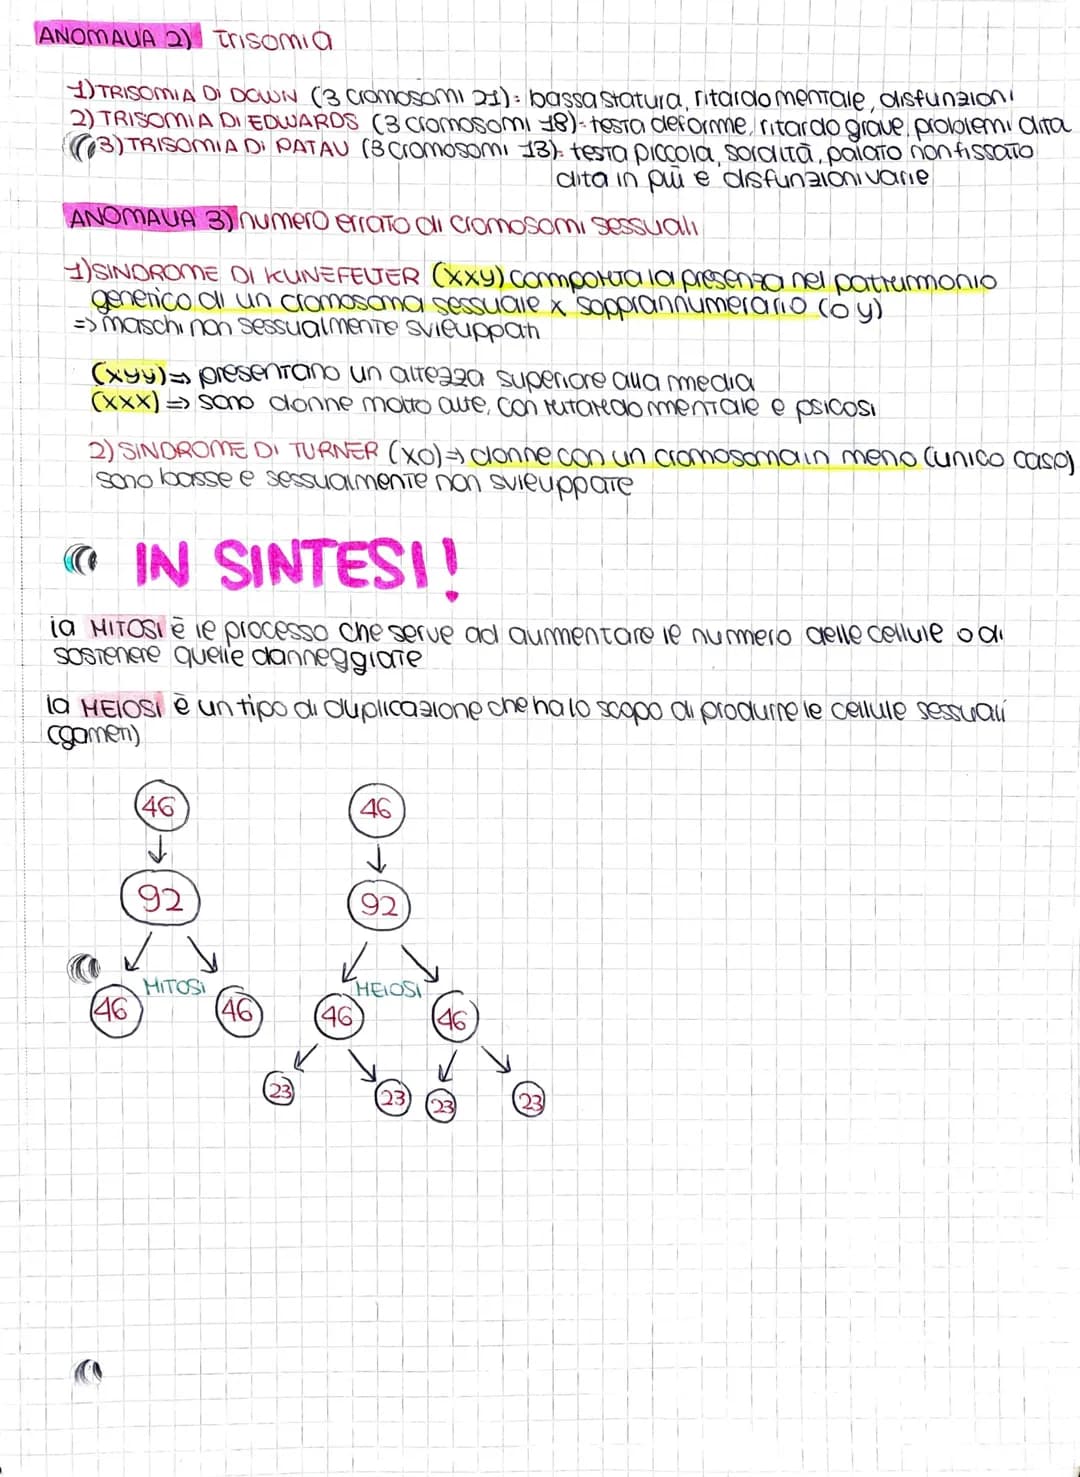 ANOMALIA 2) trisomia
1) TRISOMIA DI DOWN (3 cromosomi 21): bassa statura, ritardo mentale, disfunzioni
2) TRISOMIA DI EDWARDS (3 cromosomi 18): testa deforme, ritardo grave, problemi dita
3) TRISOMIA DI PATAU (3 cromosomi 13): testa piccola, sordità, palato non fissato
dita in più e disfunzioni varie
ANOMALIA 3) numero errato di cromosomi sessuali
1) SINDROME DI KLINEFELTER (xxy) comporta la presenza nel patrimonio
generico di un cromosoma sessuale x soprannumerario (o y)
=> maschi non sessualmente sviluppati
(xyy) => presentano un altezza superiore alla media
(xxx) => sono donne molto alte, con ritardo mentale e psicosi
2) SINDROME DI TURNER (xo) => donne con un cromosoma in meno (unico caso)
sono basse e sessualmente non sviluppate
IN SINTESI!
la MITOSI è il processo che serve ad aumentare il numero delle cellule o di
sostenere quelle danneggiate
la MEIOSI è un tipo di duplicazione che ha lo scopo di produrre le cellule sessuali
(gameti)
46 46
92 92
MITOSI MEIOSI
46 46 46 46
23 23 23 23